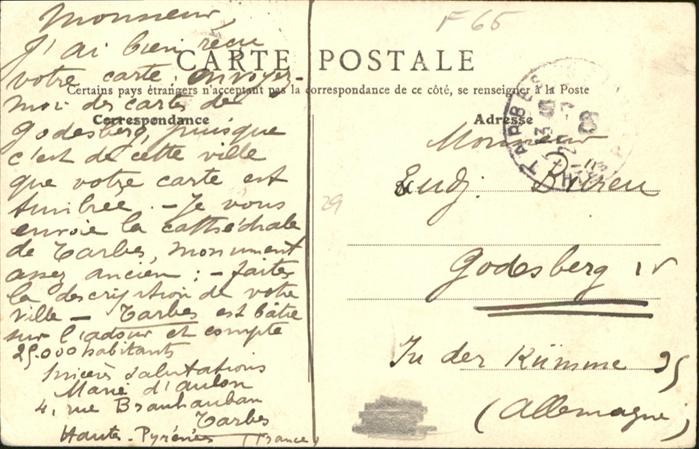 F 65
CARTE POSTALE
Certains pays étrangers n'acceptant pas la correspondance de ce côté, se renseigner à la Poste
Correspondance
Monsieur,
J'ai bien reçu
votre carte; envoyez-
moi des cartes de
Godesberg, puisque
c'est de cette ville
que votre carte est
timbrée. - Je vous
envoie la cathédrale
de Tarbes, monument
assez ancien; - faites
la description de votre
ville - Tarbes est bâtie
sur l'adour et compte
25.000 habitants
Sincères salutations
Marie d'aulon
4, rue Brauhauban
Tarbes
Hautes-Pyrénées (France)
29
Adresse
TARBES
Monsieur
Godesberg
In der Kümme 35
(Allemagne)